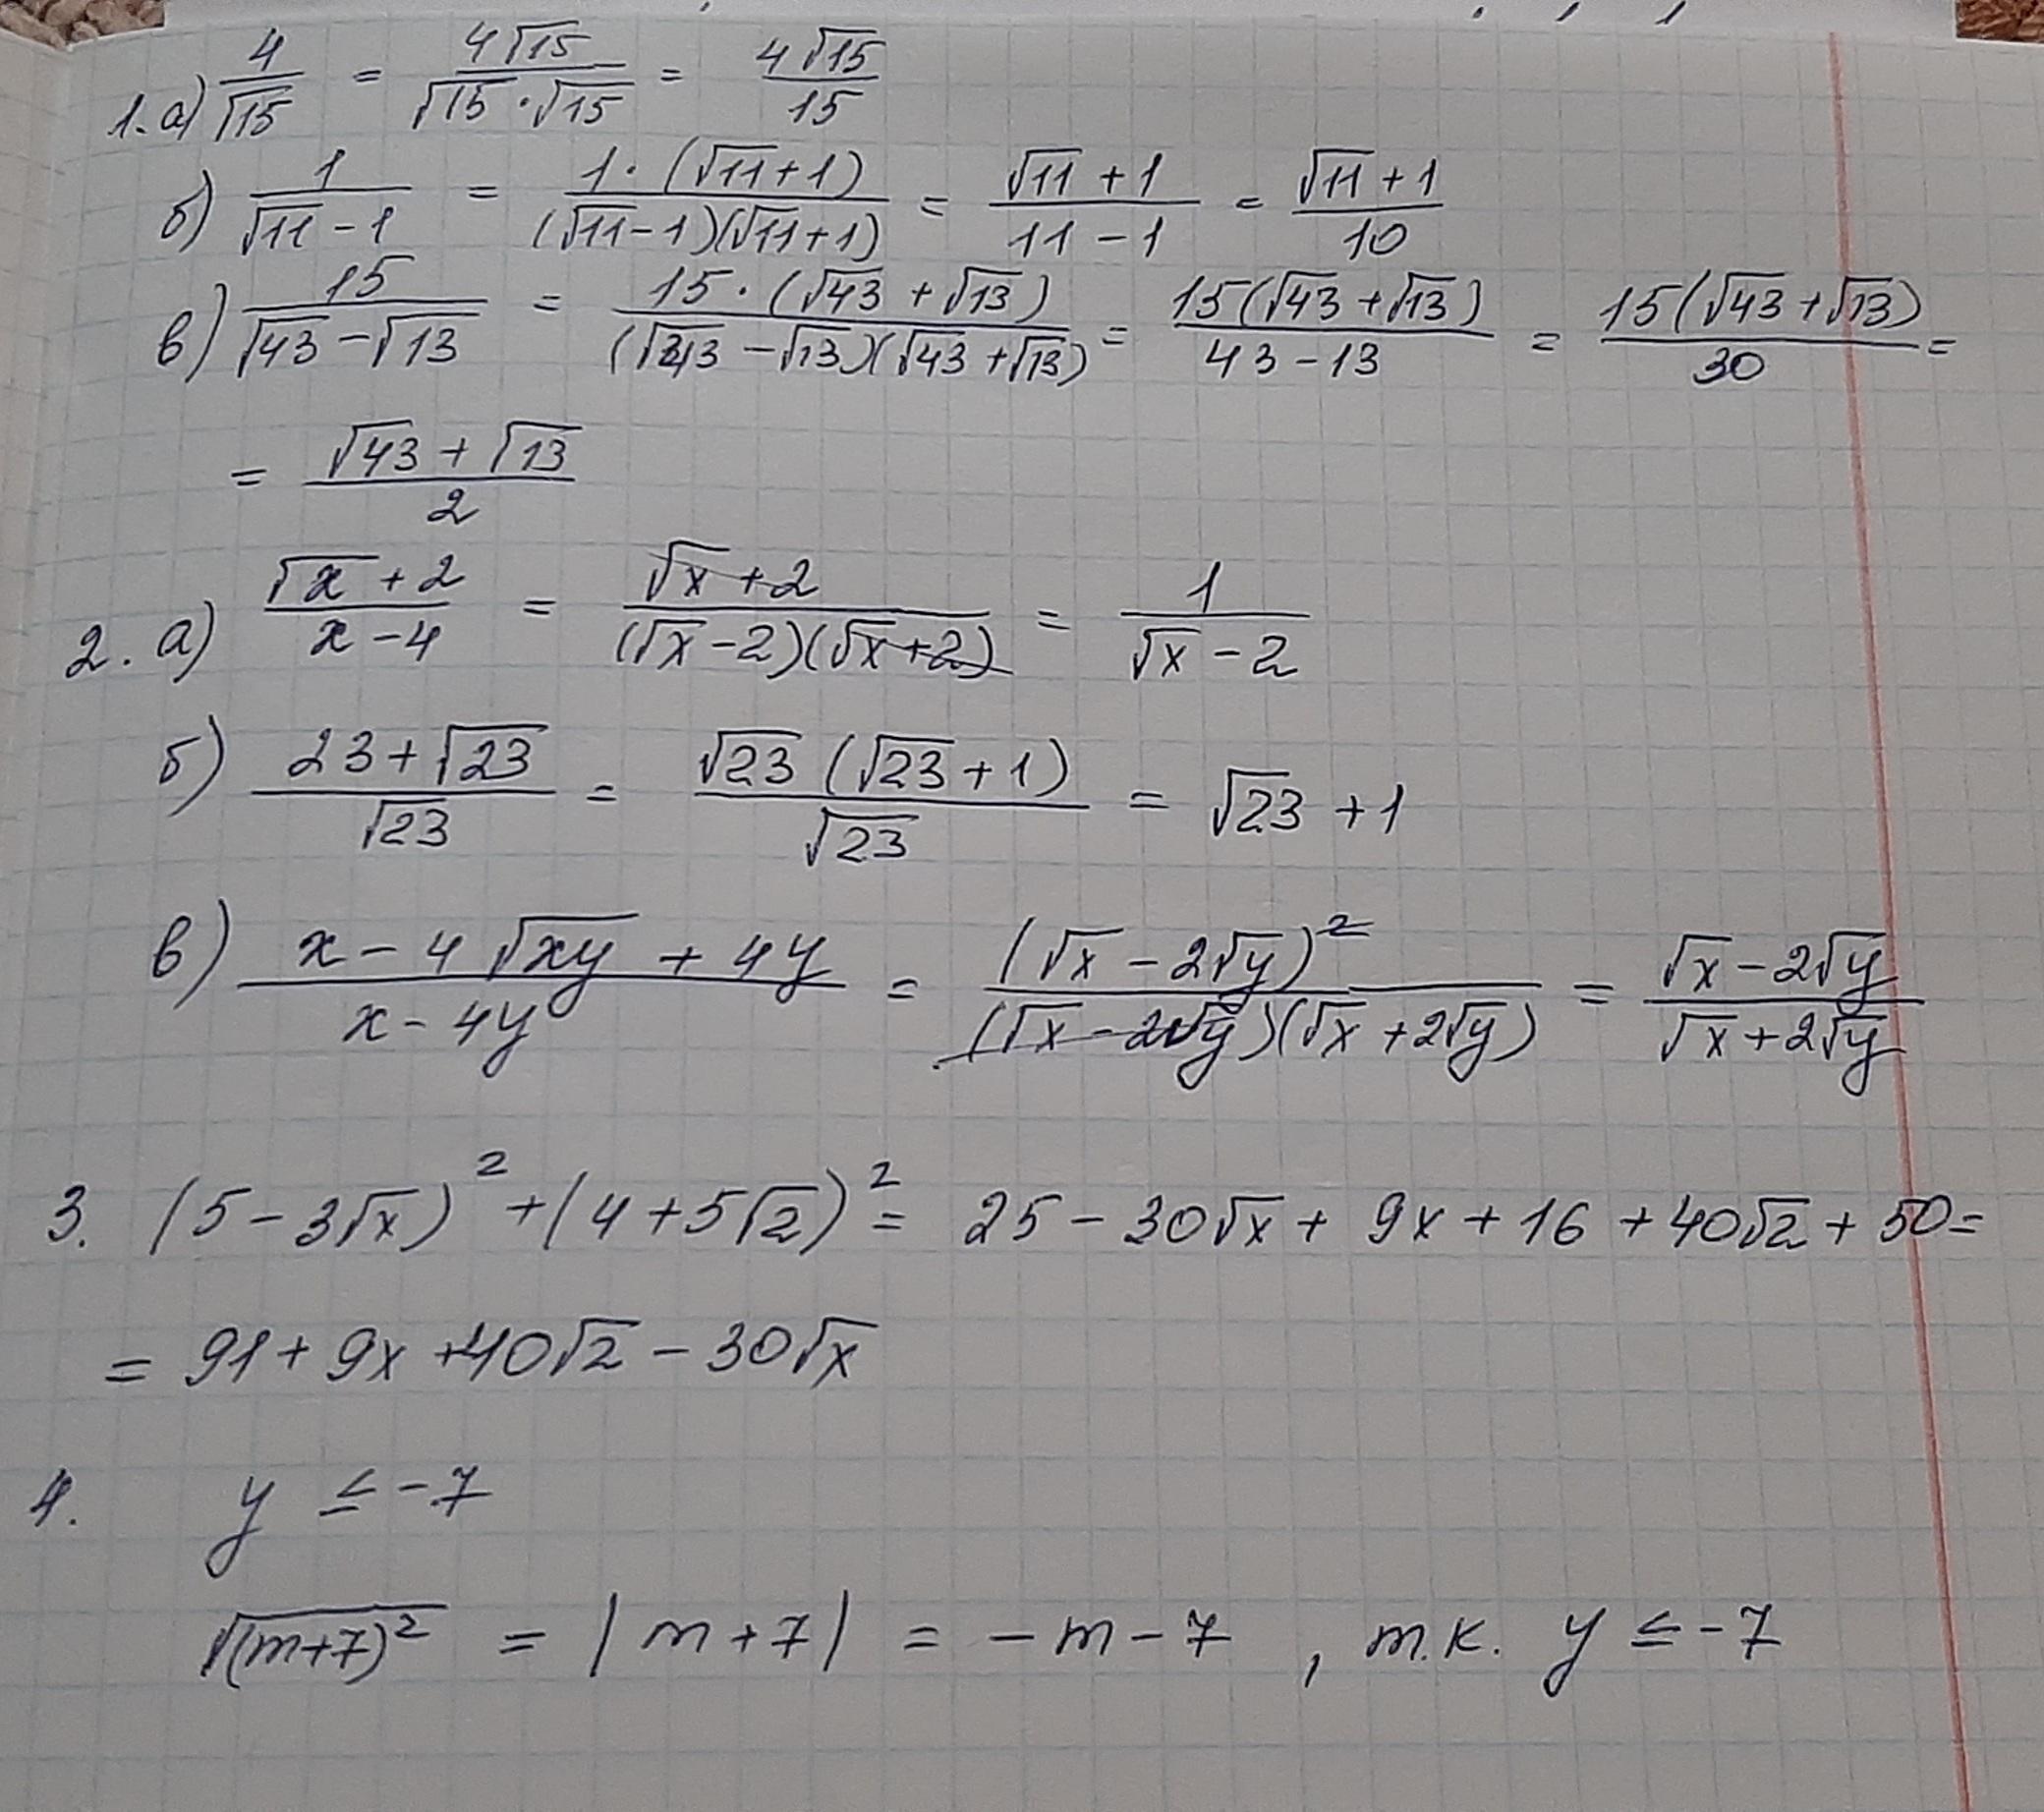 1. а) 4/√15 = 4√15/(√15 · √15) = 4√15/15
б) 1/(√11 - 1) = 1 · (√11 + 1)/((√11 - 1)(√11 + 1)) = (√11 + 1)/(11 - 1) = (√11 + 1)/10
в) 15/(√43 - √13) = 15 · (√43 + √13)/((√43 - √13)(√43 + √13)) = 15(√43 + √13)/(43 - 13) = 15(√43 + √13)/30 =
= (√43 + √13)/2
2. а) (√x + 2)/(x - 4) = (√x + 2)/((√x - 2)(√x + 2)) = 1/(√x - 2)
б) (23 + √23)/√23 = √23 (√23 + 1)/√23 = √23 + 1
в) (x - 4√xy + 4y)/(x - 4y) = (√x - 2√y)²/((√x - 2√y)(√x + 2√y)) = (√x - 2√y)/(√x + 2√y)
3. (5 - 3√x)² + (4 + 5√2)² = 25 - 30√x + 9x + 16 + 40√2 + 50 =
= 91 + 9x + 40√2 - 30√x
4. y ≤ -7
√(m+7)² = |m + 7| = -m - 7, т.к. y ≤ -7